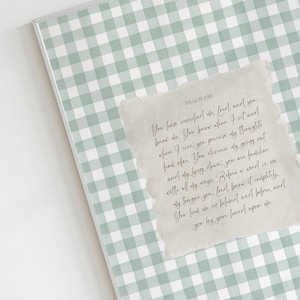 PSALM 139
You have searched me, Lord, and you
know me. You know when I sit and
when I rise; you perceive my thoughts
from afar. You discern my going out
and my lying down; you are familiar
with all my ways. Before a word is on
my tongue you, Lord, know it completely.
You hem me in behind and before, and
you lay your hand upon me.